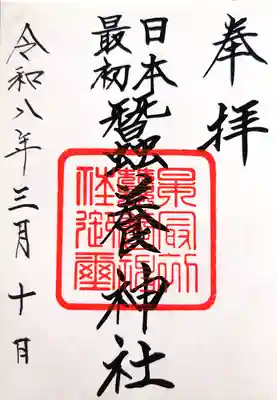 奉拝
日本
最初
蠶養神社
令和八年三月十日